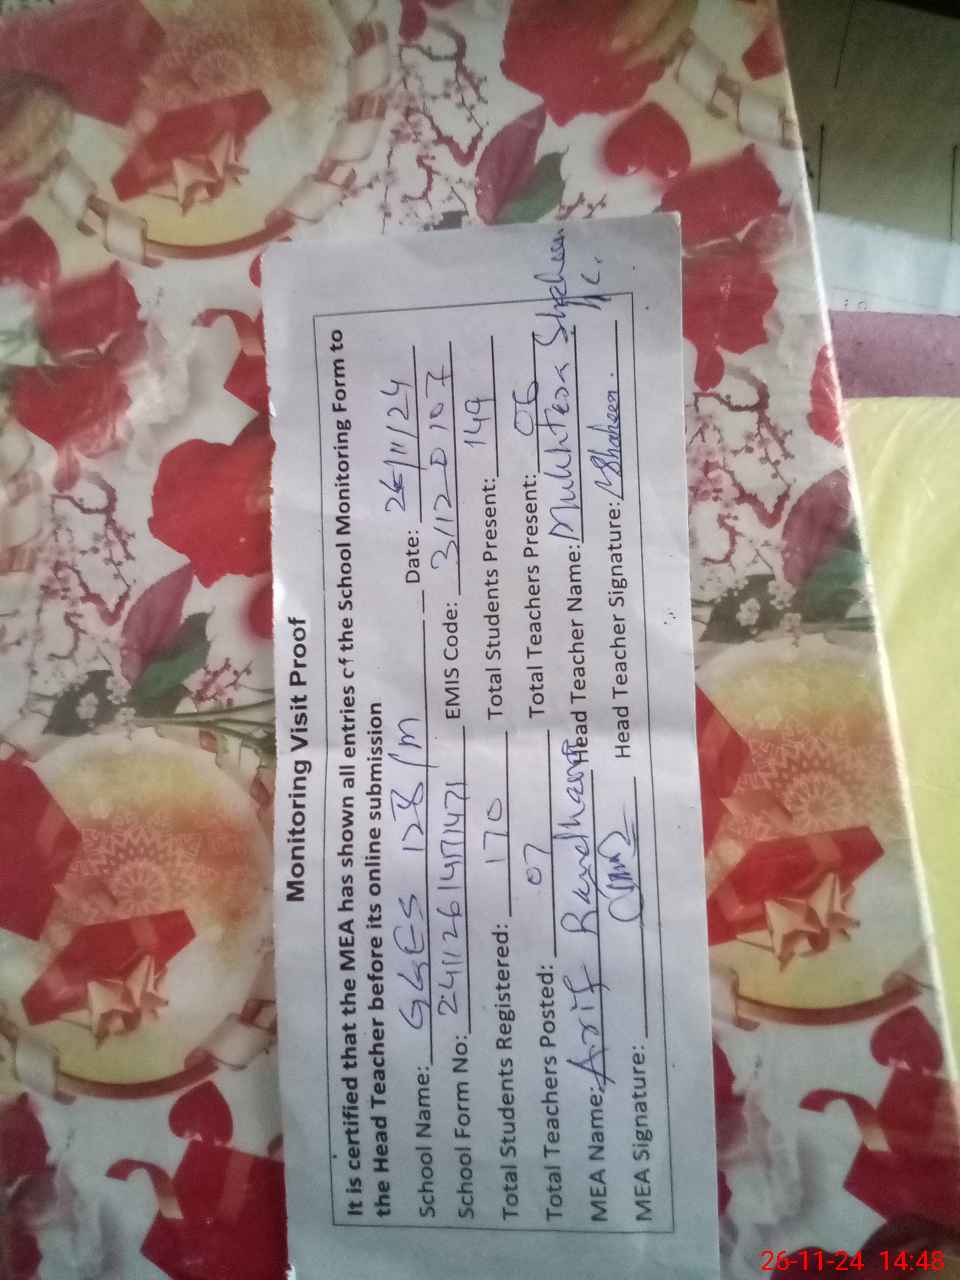 Monitoring Visit Proof
It is certified that the MEA has shown all entries of the School Monitoring Form to
the Head Teacher before its online submission
School Name: GGES 128/m Date: 26/11/24
School Form No: EMIS Code: 31120107
Total Students Registered: 170 Total Students Present: 149
Total Teachers Posted: 07 Total Teachers Present: 06
MEA Name: Arif Randhawa Head Teacher Name: Mukhtera Shaheen
MEA Signature: Head Teacher Signature: Shaheen.
26-11-24 14:48